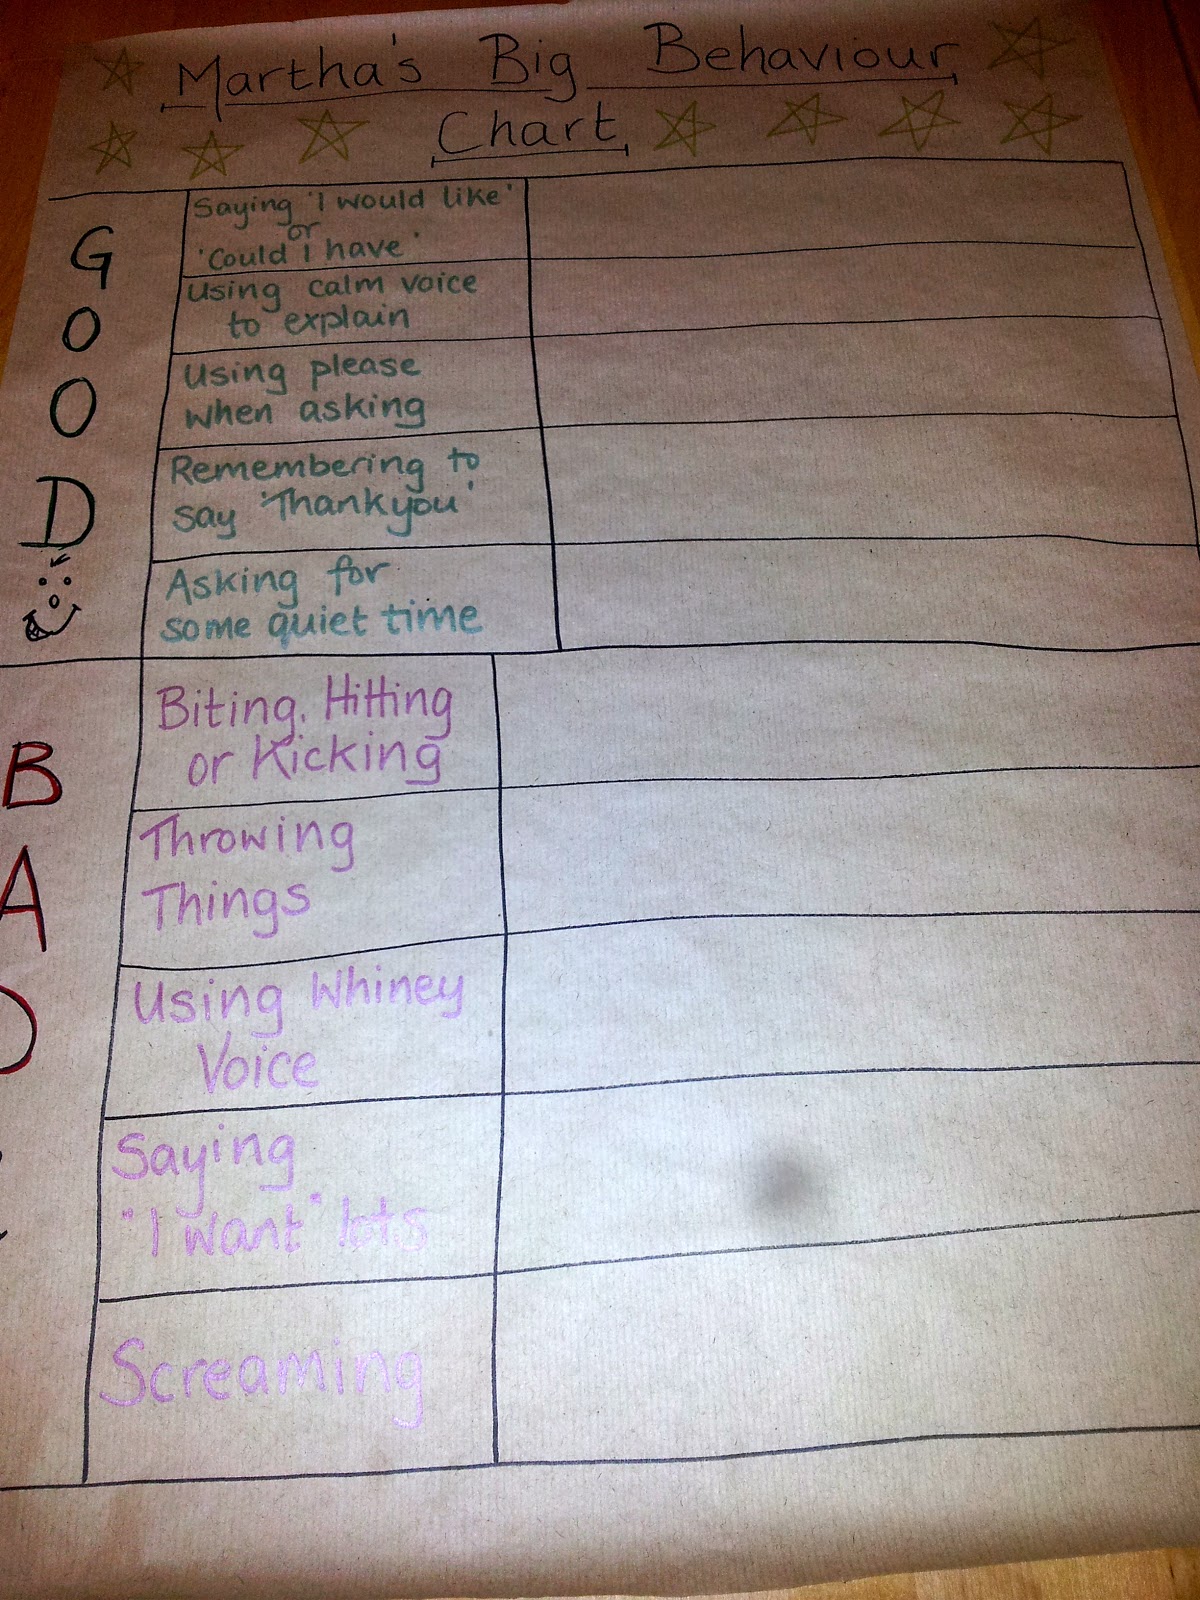 Martha's Big Behaviour
Chart
GOOD
Saying 'I would like'
or
'Could I have'
Using calm voice
to explain
Using please
when asking
Remembering to
say 'Thankyou'
Asking for
some quiet time
BAD
Biting, Hitting
or Kicking
Throwing
Things
Using Whiney
Voice
Saying
"I want" lots
Screaming